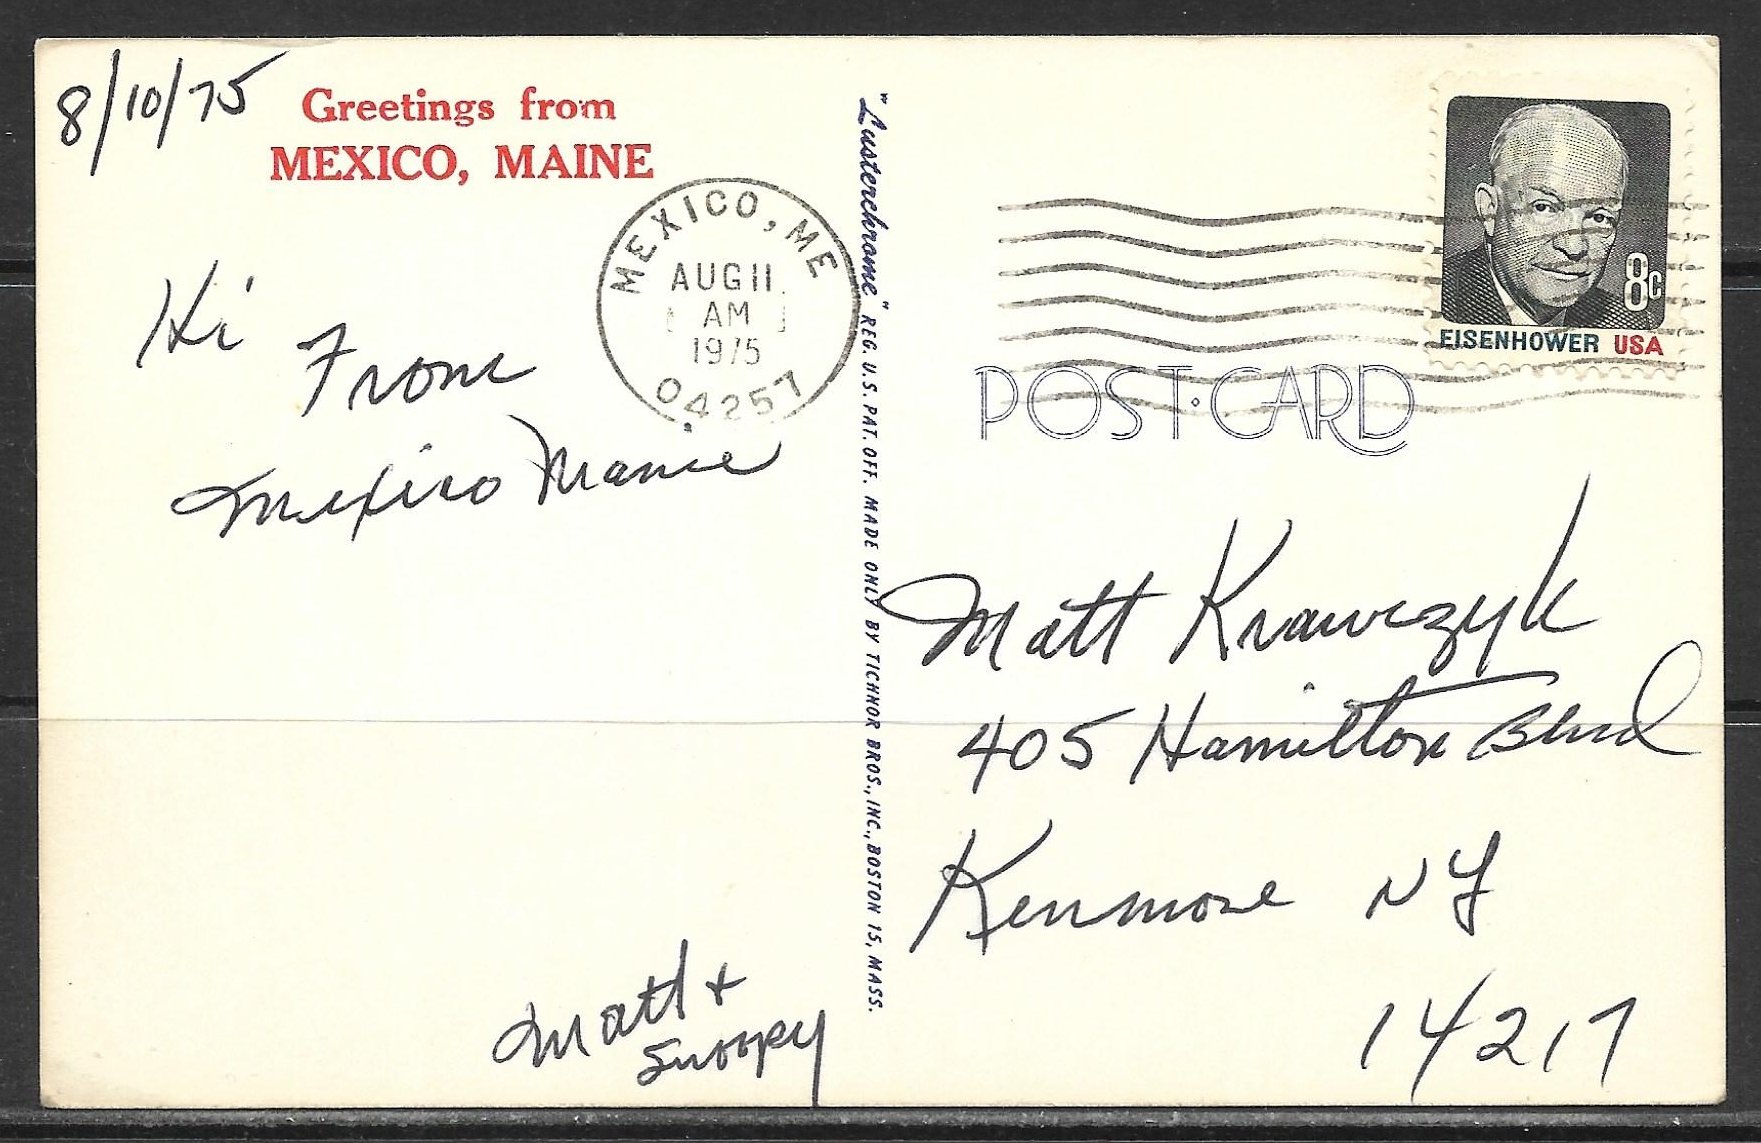 8/10/75
Greetings from
MEXICO, MAINE
MEXICO, ME
AUG 11
AM
1975
04257
Hi
From
Mexico Manie
Matt +
Snoopy
"Lusterchrome" REG. U.S. PAT. OFF. MADE ONLY BY TICHNOR BROS., INC., BOSTON 15, MASS.
8c
EISENHOWER USA
POST·CARD
Matt Krawczyk
405 Hamilton Blvd
Kenmore NY
14217